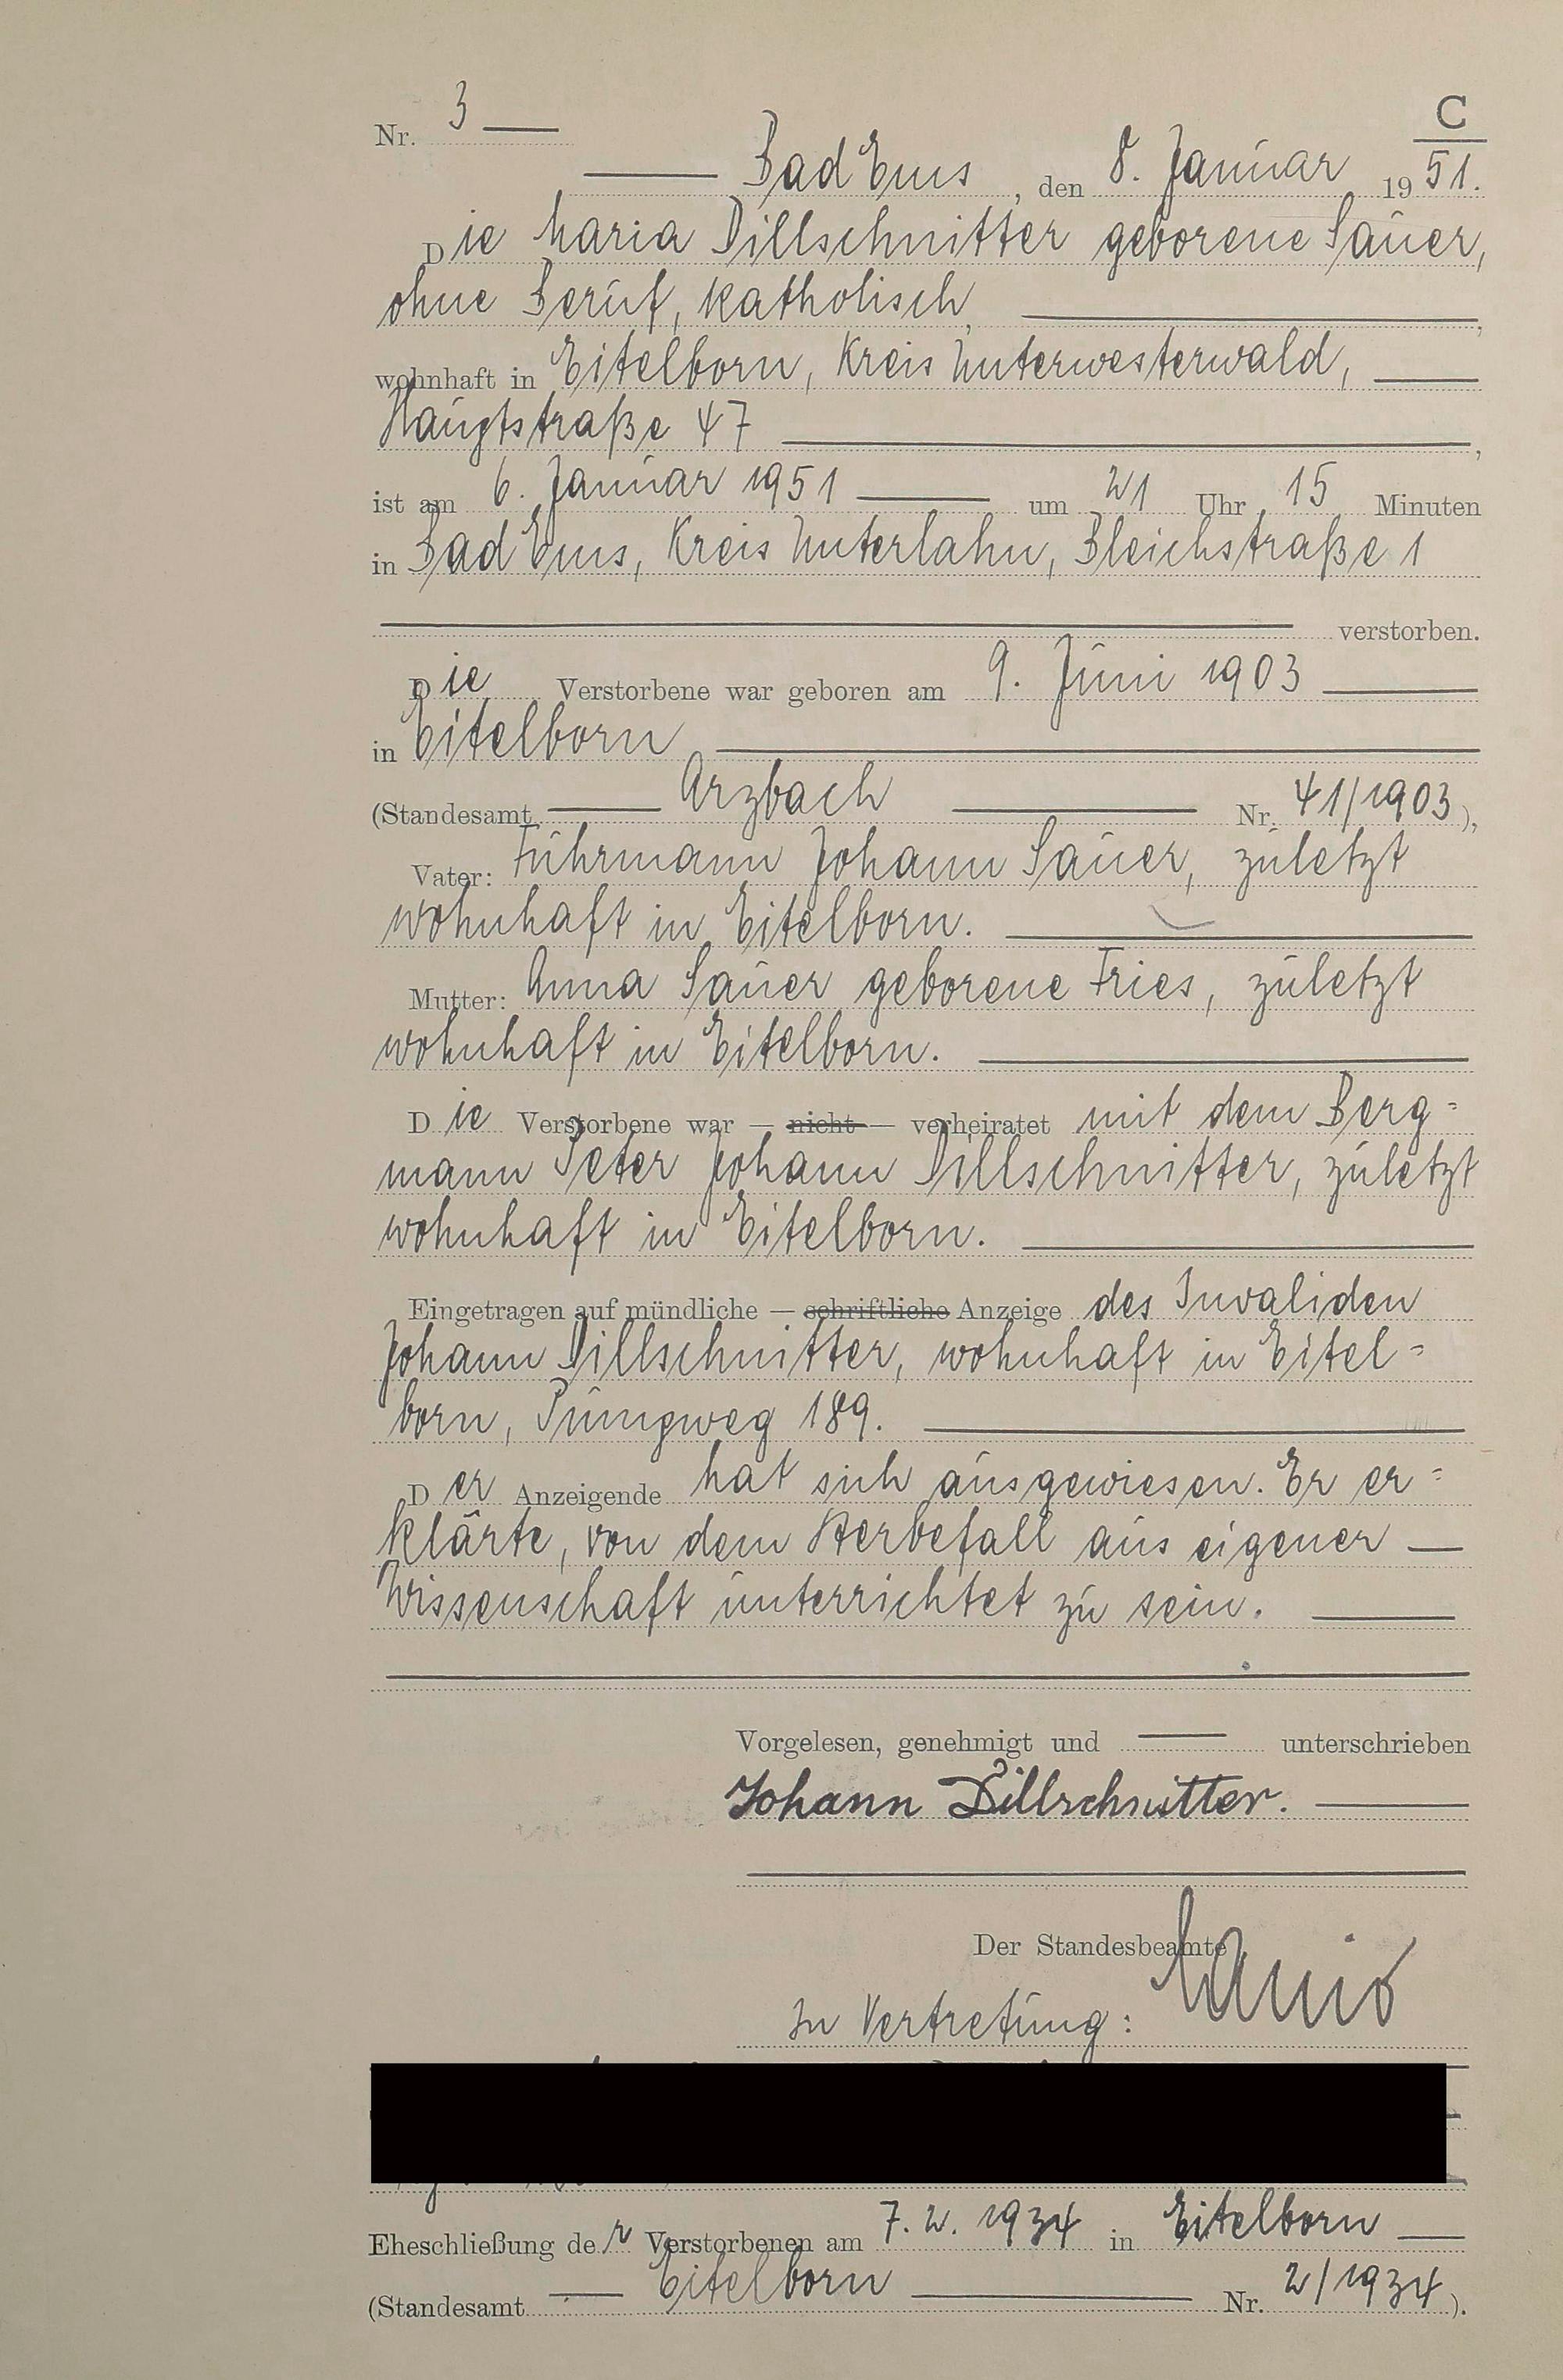 C
Nr. 3
Bad Ems, den 8. Januar 1951.
Die Maria Dillschnitter geborene Sauer,
ohne Beruf, katholisch,
wohnhaft in Eitelborn, Kreis Unterwesterwald,
Hauptstraße 47,
ist am 6. Januar 1951 um 21 Uhr 15 Minuten
in Bad Ems, Kreis Unterlahn, Bleichstraße 1
verstorben.
Die Verstorbene war geboren am 9. Juni 1903
in Eitelborn
(Standesamt Arzbach Nr. 41/1903),
Vater: Fuhrmann Johann Sauer, zuletzt
wohnhaft in Eitelborn.
Mutter: Anna Sauer geborene Fries, zuletzt
wohnhaft in Eitelborn.
Die Verstorbene war — nicht — verheiratet mit dem Berg=
mann Peter Johann Dillschnitter, zuletzt
wohnhaft in Eitelborn.
Eingetragen auf mündliche — schriftliche Anzeige des Invaliden
Johann Dillschnitter, wohnhaft in Eitel=
born, Pumpweg 189.
Der Anzeigende hat sich ausgewiesen. Er er=
klärte, von dem Sterbefall aus eigener
Wissenschaft unterrichtet zu sein.
Vorgelesen, genehmigt und unterschrieben
Johann Dillschnitter.
Der Standesbeamte
In Vertretung:
Eheschließung der Verstorbenen am 7. 2. 1934 in Eitelborn
(Standesamt Eitelborn Nr. 2/1934).